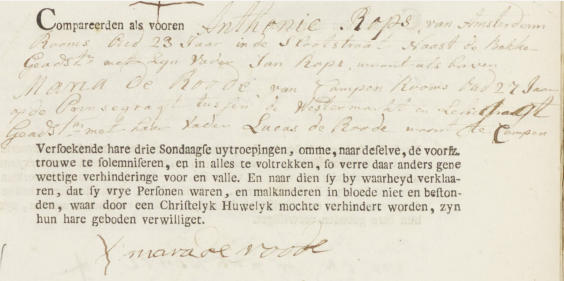 Compareerden als vooren Anthonie Rops, van Amsterdam
Rooms oud 23 Jaar in de Slootstraat Naast de Bakker
Geadst. met zyn Vader Jan Rops, woont als boven
Maria de Roode, van Campen Rooms oud 27 Jaar
op de Prinsegragt tussen de Westermarkt en
Geadst. met haar Vader Lucas de Roode woont te Campen
Versoekende hare drie Sondaagse uytroepingen, omme, naar deselve, de voorſz.
trouwe te solemniseren, en in alles te voltrekken, so verre daar anders gene
wettige verhinderinge voor en valle. En naar dien sy by waarheyd verklaa-
ren, dat sy vrye Personen waren, en malkanderen in bloede niet en beston-
den, waar door een Christelyk Huwelyk mochte verhindert worden, zyn
hun hare geboden verwilliget.
maria de roode